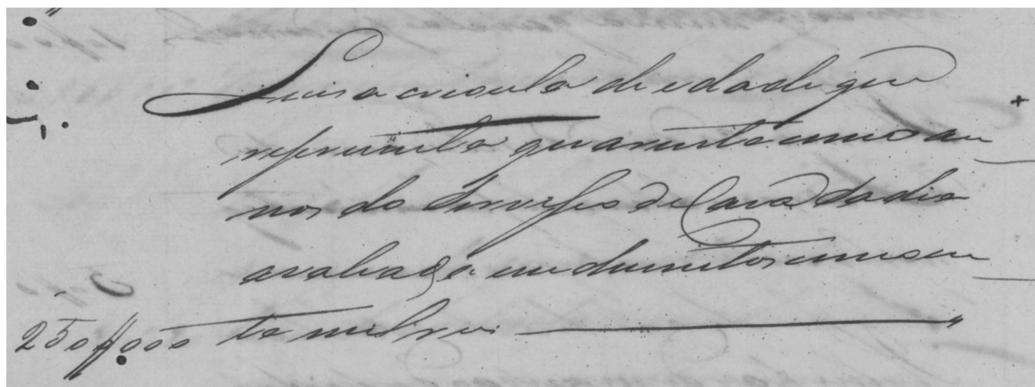 Luisa crioula de edade que
representa quarenta e cinco an
nos do Serviço de Casa
avaliada em duzentos cincoen
250$000 ta mil reis